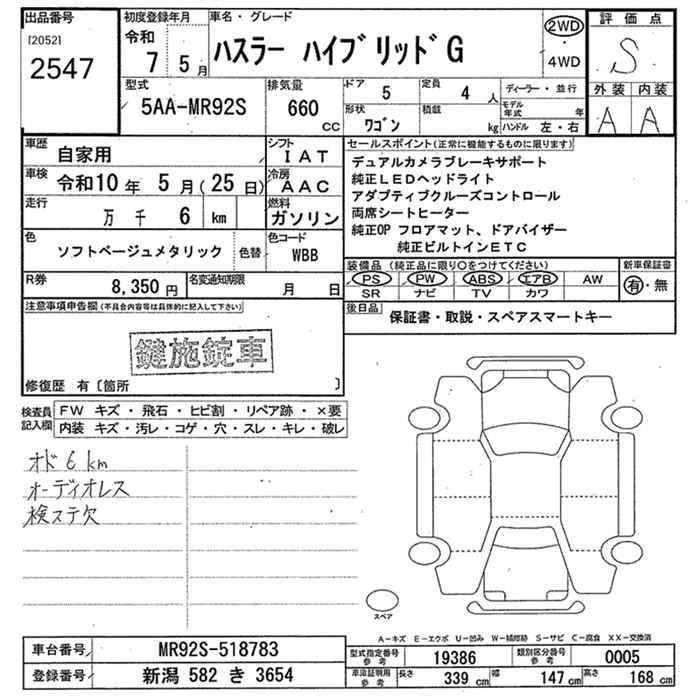 出品番号
[2052]
2547
初度登録年月
令和
7 5月
車名・グレード
ハスラー ハイブリッドG
2WD
・
4WD
評価点
S
外装 内装
A A
型式
5AA-MR92S
排気量
660
cc
ドア
5
定員
4 人
ディーラー・並行
形状
ワゴン
積載
kg
モデル年式 年
ハンドル 左・右
車歴
自家用
シフト
IAT
車検
令和10年 5月(25日)
冷房
AAC
走行
万 千 6 km
燃料
ガソリン
色
ソフトベージュメタリック
色替
色コード
WBB
R券
8,350円
名変通知期限
月 日
セールスポイント(正常に機能するものに限ります)
デュアルカメラブレーキサポート
純正LEDヘッドライト
アダプティブクルーズコントロール
両席シートヒーター
純正OP フロアマット、ドアバイザー
純正ビルトインETC
装備品 (純正品に限り○をつけてください)
PS PW ABS エアB AW
SR ナビ TV カワ
新車保証書
有・無
後日品
保証書・取説・スペアスマートキー
注意事項申告欄(不具合内容等は具体的に記入して下さい)
鍵施錠車
修復歴 有〔箇所 〕
検査員
記入欄
FW キズ・飛石・ヒビ割・リペア跡・×要
内装 キズ・汚レ・コゲ・穴・スレ・キレ・破レ
オド6km
オーディオレス
検ステ欠
スペア
A-キズ E-エクボ U-凹み W-補修跡 S-サビ C-腐食 XX-交換済
車台番号
MR92S-518783
登録番号
新潟 582 き 3654
型式指定番号
参考
19386
類別区分番号
参考
0005
車庫証明用
参考
長さ 339cm
幅 147cm
高さ 168cm